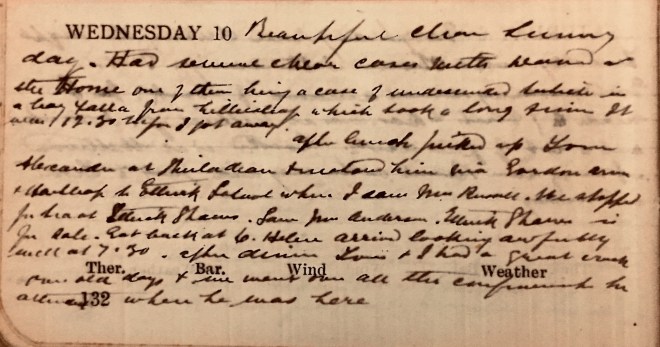 WEDNESDAY 10 Beautiful clear sunny
day. Had several clear cases with
the Home one of them being a case of undescended testicle in
a boy from Lilliesleaf which took a long time It
was 12.30 before I got away.
after lunch picked up Tom
Alexander at & motored him via Gordon
& to Ettrick School where I saw Mrs Russell. We stopped
for tea at Ettrick Shaws. Saw Mrs Anderson. Ettrick Shaws is
for sale. Got back at 6. Helen arrived looking awfully
well at 7.30. after dinner Tom & I had a great crack
Ther. Bar. Wind Weather
over old days & we went over all the he
132 when he was here